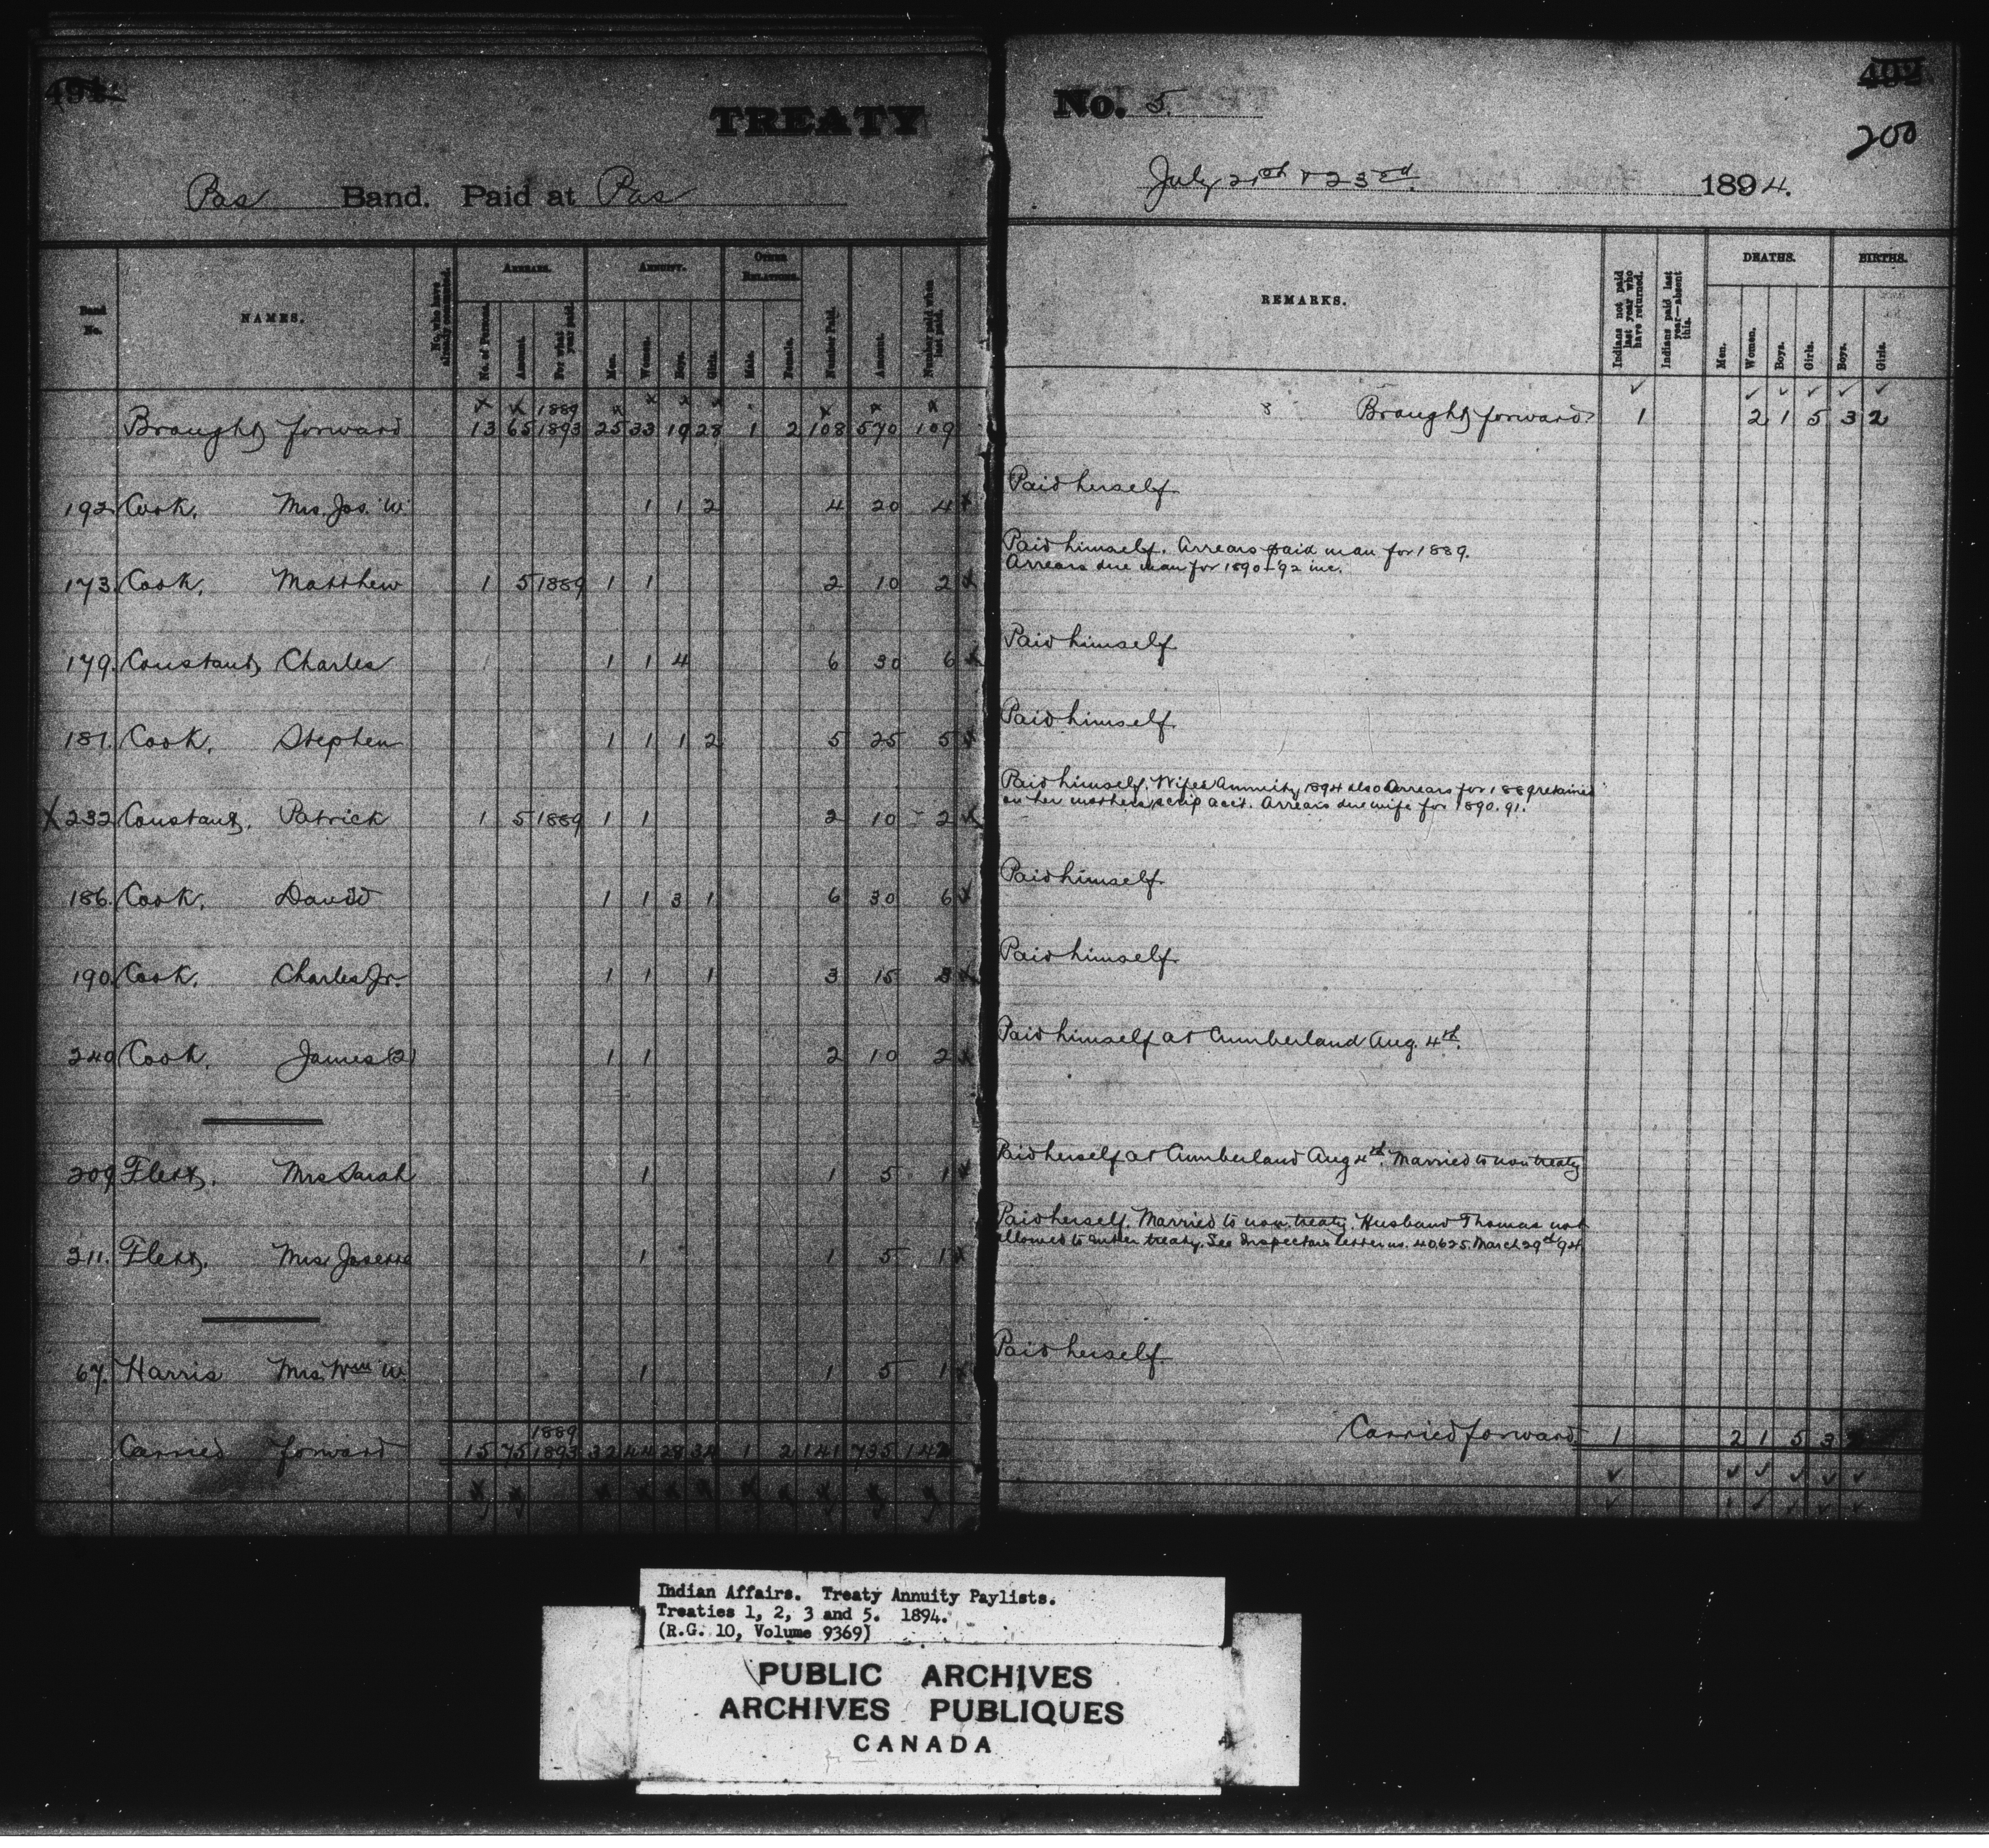 491.
TREATY
Pas Band. Paid at Pas
Band No.
NAMES.
No. who have already commuted.
ARREARS.
No. of Persons.
Amount.
For what year paid.
ANNUITY.
Men.
Women.
Boys.
Girls.
OTHER RELATIONS.
Male.
Female.
Number Paid.
Amount.
Number paid when last paid.
x x 1889 x x x x x x x
Brought forward 13 65 1893 25 33 19 28 1 2 108 570 109
192. Cook, Mrs. Jos. W. 1 1 2 4 20 4 x
173. Cook, Matthew 1 5 1889 1 1 2 10 2 x
179. Constant, Charles 1 1 4 6 30 6 x
181. Cook, Stephen 1 1 1 2 5 25 5 x
X 232 Constant, Patrick 1 5 1889 1 1 2 10 2 x
186. Cook, David 1 1 3 1 6 30 6 x
190. Cook, Charles Jr. 1 1 1 3 15 3 x
240 Cook, James (2) 1 1 2 10 2 x
209 Flett, Mrs Sarah 1 1 5 1 x
211. Flett, Mrs Josette 1 1 5 1 x
67. Harris Mrs. Wm W. 1 1 5 1 x
1889
Carried forward 15 75 1893 32 44 28 34 1 2 141 735 142
No. 5.
402
200
July 21st & 23rd. 1894.
REMARKS.
Indians not paid last year who have returned.
Indians paid last year—absent this.
DEATHS.
Men.
Women.
Boys.
Girls.
BIRTHS.
Boys.
Girls.
Brought forward 1 2 1 5 3 2
Paid herself
Paid himself. Arrears paid man for 1889.
Arrears due man for 1890-92 inc.
Paid himself
Paid himself
Paid himself. Wifes Annuity 1894 also Arrears for 1889 retained
on her mothers scrip acct. Arrears due wife for 1890.91.
Paid himself.
Paid himself.
Paid himself at Cumberland Aug. 4th.
Paid herself at Cumberland Aug 4th. Married to non treaty
Paid herself. Married to non treaty. Husband Thomas not
allowed to enter treaty. See Inspectors letter no. 40625. March 29th 94.
Paid herself
Carried forward 1 2 1 5 3 2
Indian Affairs. Treaty Annuity Paylists.
Treaties 1, 2, 3 and 5. 1894.
(R.G. 10, Volume 9369)
PUBLIC ARCHIVES
ARCHIVES PUBLIQUES
CANADA